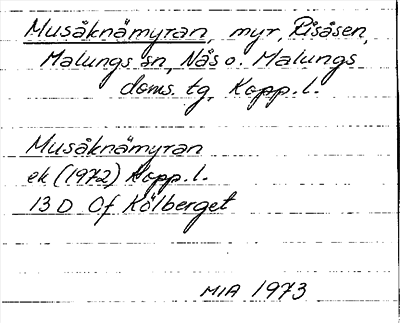 Musåknämyran, myr, Risåsen,
Malungs sn, Nås o. Malungs
doms. tg, Kopp. l.
Musåknämyran
ek (1972) Kopp. l.
13 D Of Kölberget
MIA 1973